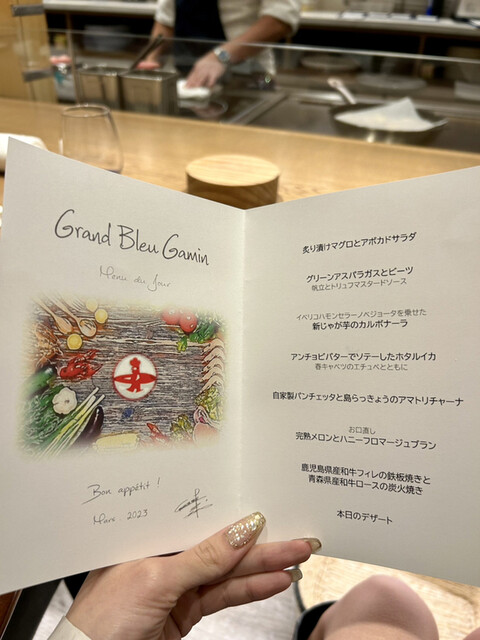 Grand Bleu Gamin
Menu du Jour
Bon appétit !
Mars 2023
炙り漬けマグロとアボカドサラダ
グリーンアスパラガスとビーツ
帆立とトリュフマスタードソース
イベリコハモンセラーノベジョータを乗せた
新じゃが芋のカルボナーラ
アンチョビバターでソテーしたホタルイカ
春キャベツのエチュベとともに
自家製パンチェッタと島らっきょうのアマトリチャーナ
お口直し
完熟メロンとハニーフロマージュブラン
鹿児島県産和牛フィレの鉄板焼きと
青森県産和牛ロースの炭火焼き
本日のデザート